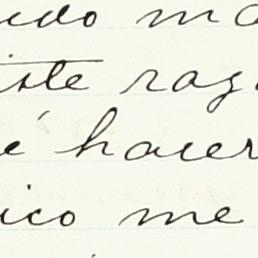 uedo ma
iste rag
é hacer
ico me